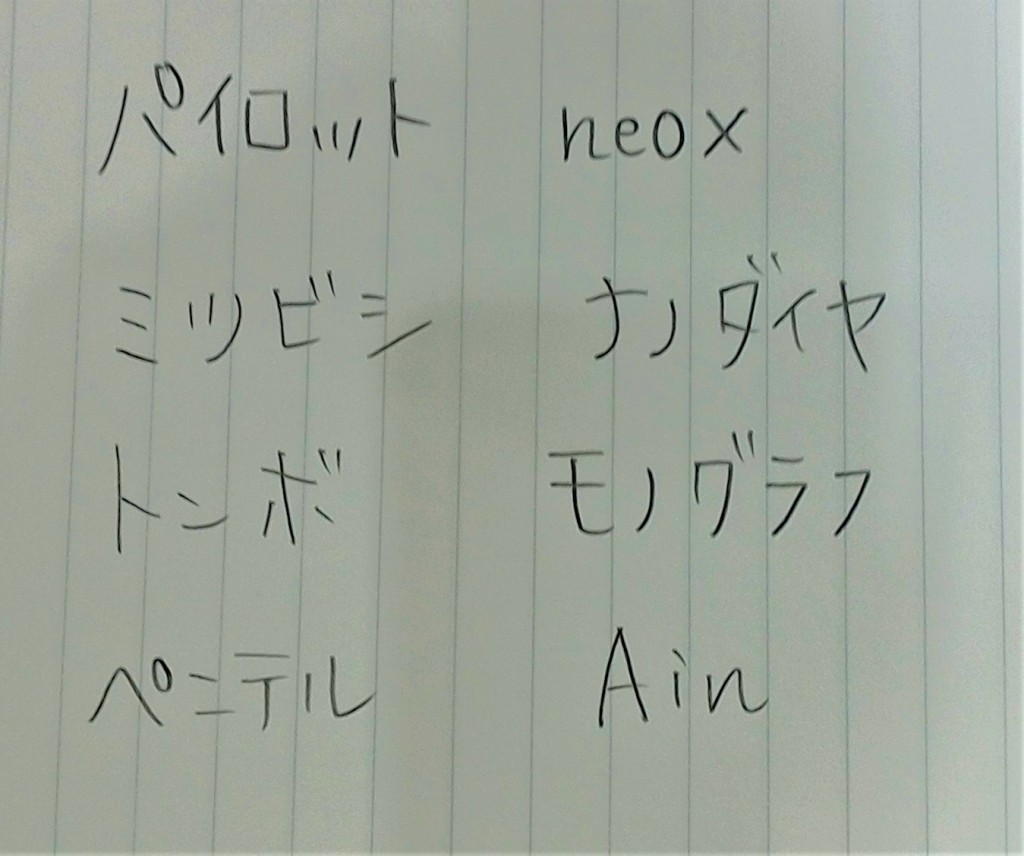 パイロット neox
ミツビシ ナノダイヤ
トンボ モノグラフ
ペンテル Ain